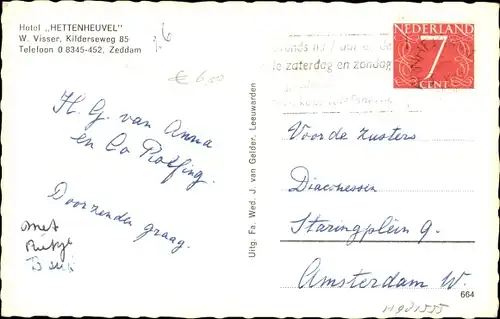 Hotel „HETTENHEUVEL"
W. Visser, Kilderseweg 85
Telefoon 0 8345-452, Zeddam
€ 6.00
NEDERLAND
7
CENT
zaterdag en zondag
H. G. van Anna
en Co Rolfing.
Doorzenden graag.
met
Uitg. Fa. Wed. J. van Gelder, Leeuwarden
Voor de zusters
Diaconessen
Staringplein 9.
Amsterdam W.
664